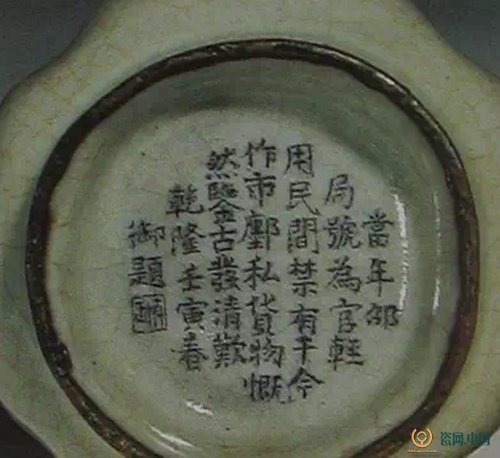 當年邵
局號為官輕
用民間禁有干今
作市鄽私貨物慨
然鑒古發清歎
乾隆壬寅春
御題
瓷网.中国